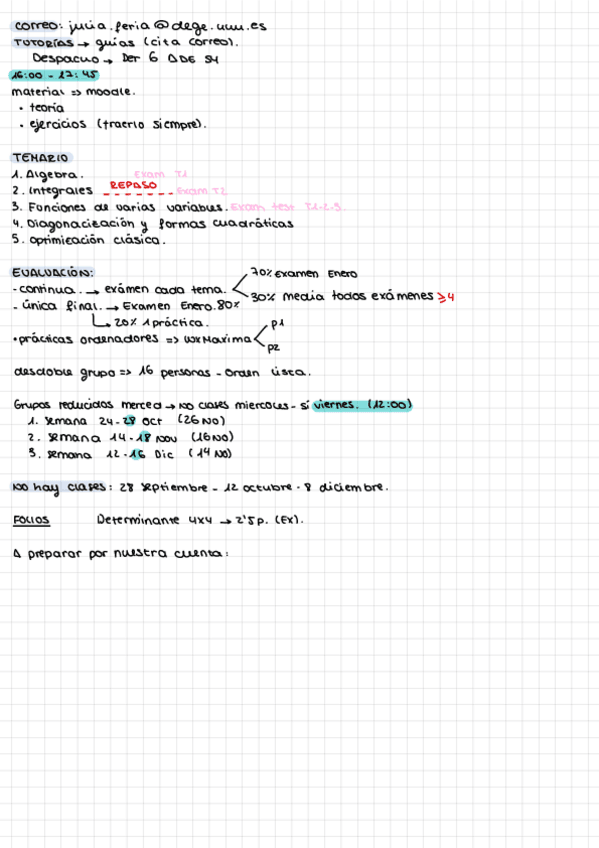 correo: julia.feria@dege.uhu.es
TUTORÍAS → guías (cita correo).
Despacho → Der 6 ADE 54
16:00 - 17:45
material => moodle.
• teoría
• ejercicios (traerlo siempre).
TEMARIO
1. Algebra. Exam T1
2. Integrales REPASO Exam T2
3. Funciones de varias variables. Exam test T1.2.3.
4. Diagonalización y formas cuadráticas
5. Optimización clásica.
EVALUACIÓN:
70% Examen Enero
- continua. → exámen cada tema.
30% media todos exámenes ≥4
- única final. → Examen Enero. 80%
20% 1 práctica.
• prácticas ordenadores => wxMaxima
p1
p2
desdoble grupo => 16 personas - Orden lista.
Grupos reducidos merced → NO clases miercoles - sí viernes. (12:00)
1. semana 24-28 Oct (26 NO)
2. semana 14-18 Nov (16 NO)
3. semana 12-16 Dic (14 NO)
NO hay clases: 28 Septiembre - 12 octubre - 8 diciembre.
FOLIOS Determinante 4x4 → 2'5p. (Ex).
A preparar por nuestra cuenta: